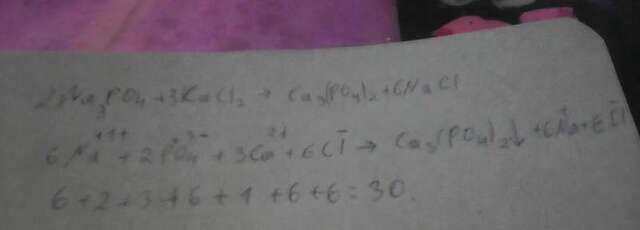 2Na₃PO₄ + 3CaCl₂ → Ca₃(PO₄)₂ + 6NaCl
6Na⁺⁺⁺ + 2PO₄³⁻ + 3Ca²⁺ + 6Cl⁻ → Ca₃(PO₄)₂↓ + 6Na⁺ + 6Cl⁻
6 + 2 + 3 + 6 + 1 + 6 + 6 = 30.